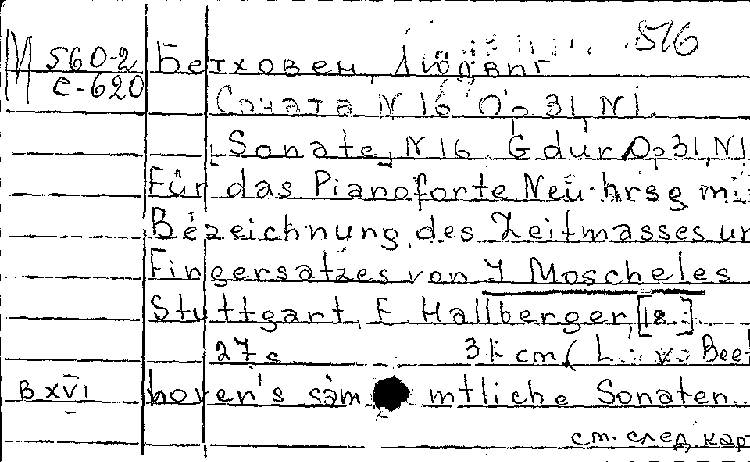 516
М 560-2
е-620
Бетховен, Людвиг
Соната N 16 Op 31, N1.
[Sonate, N 16 G dur Op 31, N1
Für das Pianoforte Neu hrsg mi
Bezeichnung des Zeitmasses un
Fingersatzes von I Moscheles
Stuttgart, E Hallberger, [18..].
27 с 31 cm (L. v. Beet
B XVI hoven's säm mtliche Sonaten
см. след. кар